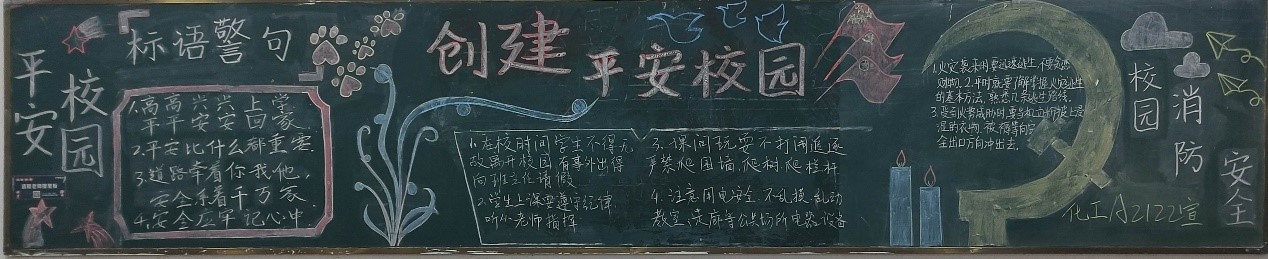 平安
校园
标语警句
1.高高兴兴上学
平平安安回家
2.平安比什么都重要
3.道路牵着你我他,
安全系着千万家.
4.安全应牢记心中.
创建平安校园
1.在校时间学生不得无
故离开校园有事外出得
向班主任请假
2.学生上课要遵守纪律.
听从老师指挥
3.课间玩耍不打闹追逐
严禁爬围墙,爬树爬栏杆
4.注意用电安全.不乱摸.乱动
教室,走廊等公共场所电器设备
1.火灾袭来时要迅速逃生.不要贪恋
财物.2.平时就要了解掌握火灾逃生
的基本方法,熟悉几条逃生路线.
3.受到火势威胁时,要当机立断披上浸
湿的衣物.被褥等向安
全出口方向冲出去.
校园
消防
安全
化工A2122宣